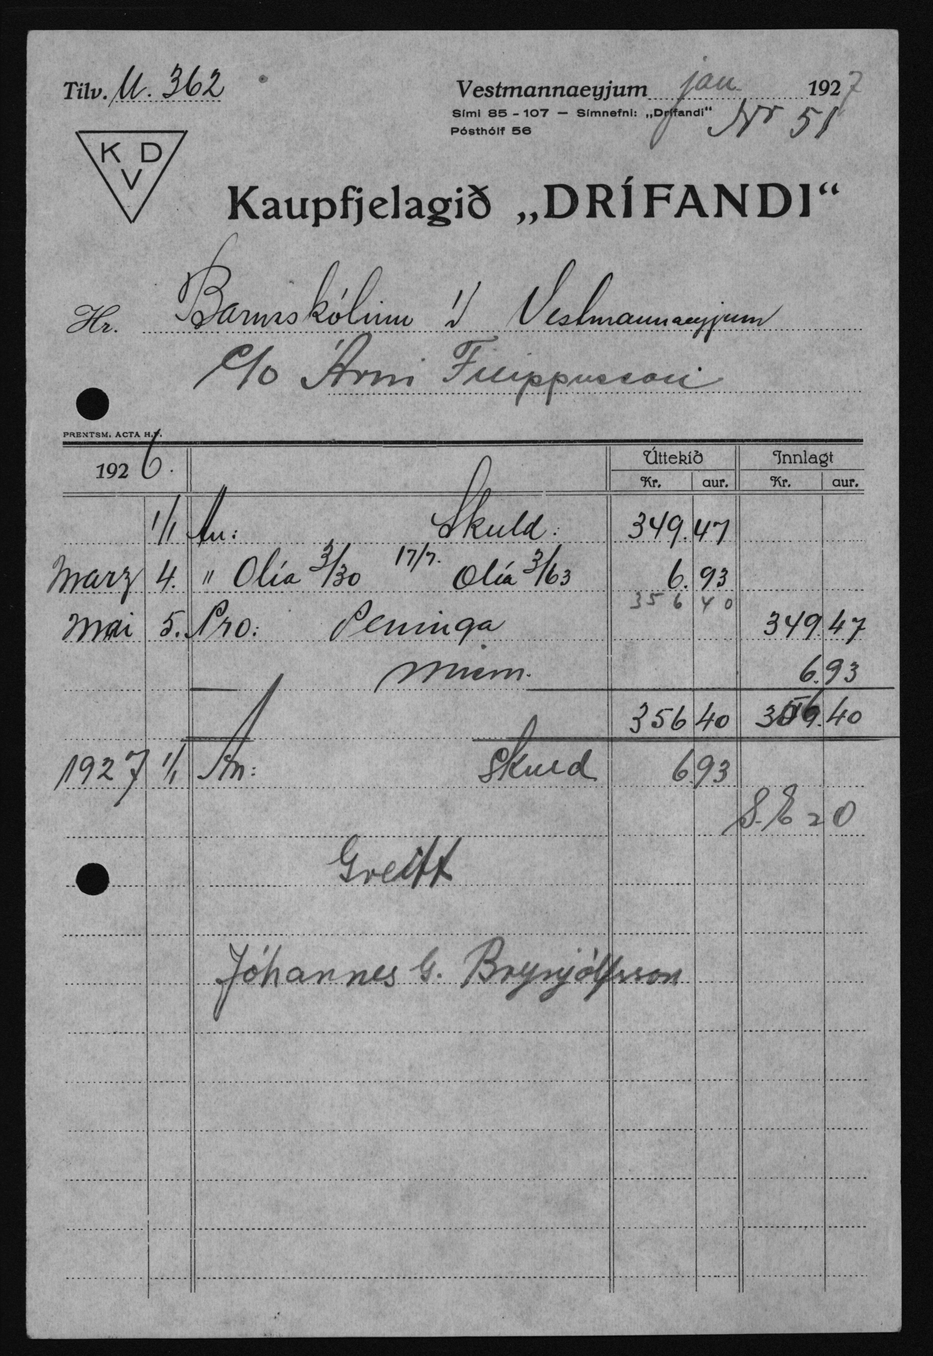 Tilv. U. 362
Vestmannaeyjum jan. 1927
Sími 85 - 107 — Símnefni: „Drífandi“
Pósthólf 56
Nr 51
K D V
Kaupfjelagið „DRÍFANDI“
Hr. Barnaskólinn í Vestmannaeyjum
C/o Árni Filippusson
PRENTSM. ACTA H.F.
1926. Úttekið Innlagt
Kr. aur. Kr. aur.
1/1 An: Skuld. 349.47
Marz 4. " Olía 3/30 17/7. Olía 3/63 6.93
356 40
Mai 5. Pro: Peninga 349.47
Mism. 6.93
356 40 356.40
1927 1/1 An: Skuld 6.93
S.E & O
Greitt
Jóhannes G. Brynjólfsson